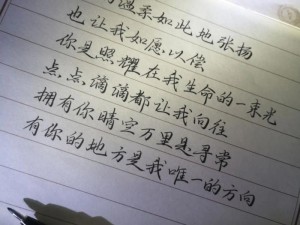 温柔如此地张扬
也让我如愿以偿
你是照耀在我生命的一束光
点点滴滴都让我向往
拥有你晴空万里是寻常
有你的地方是我唯一的方向